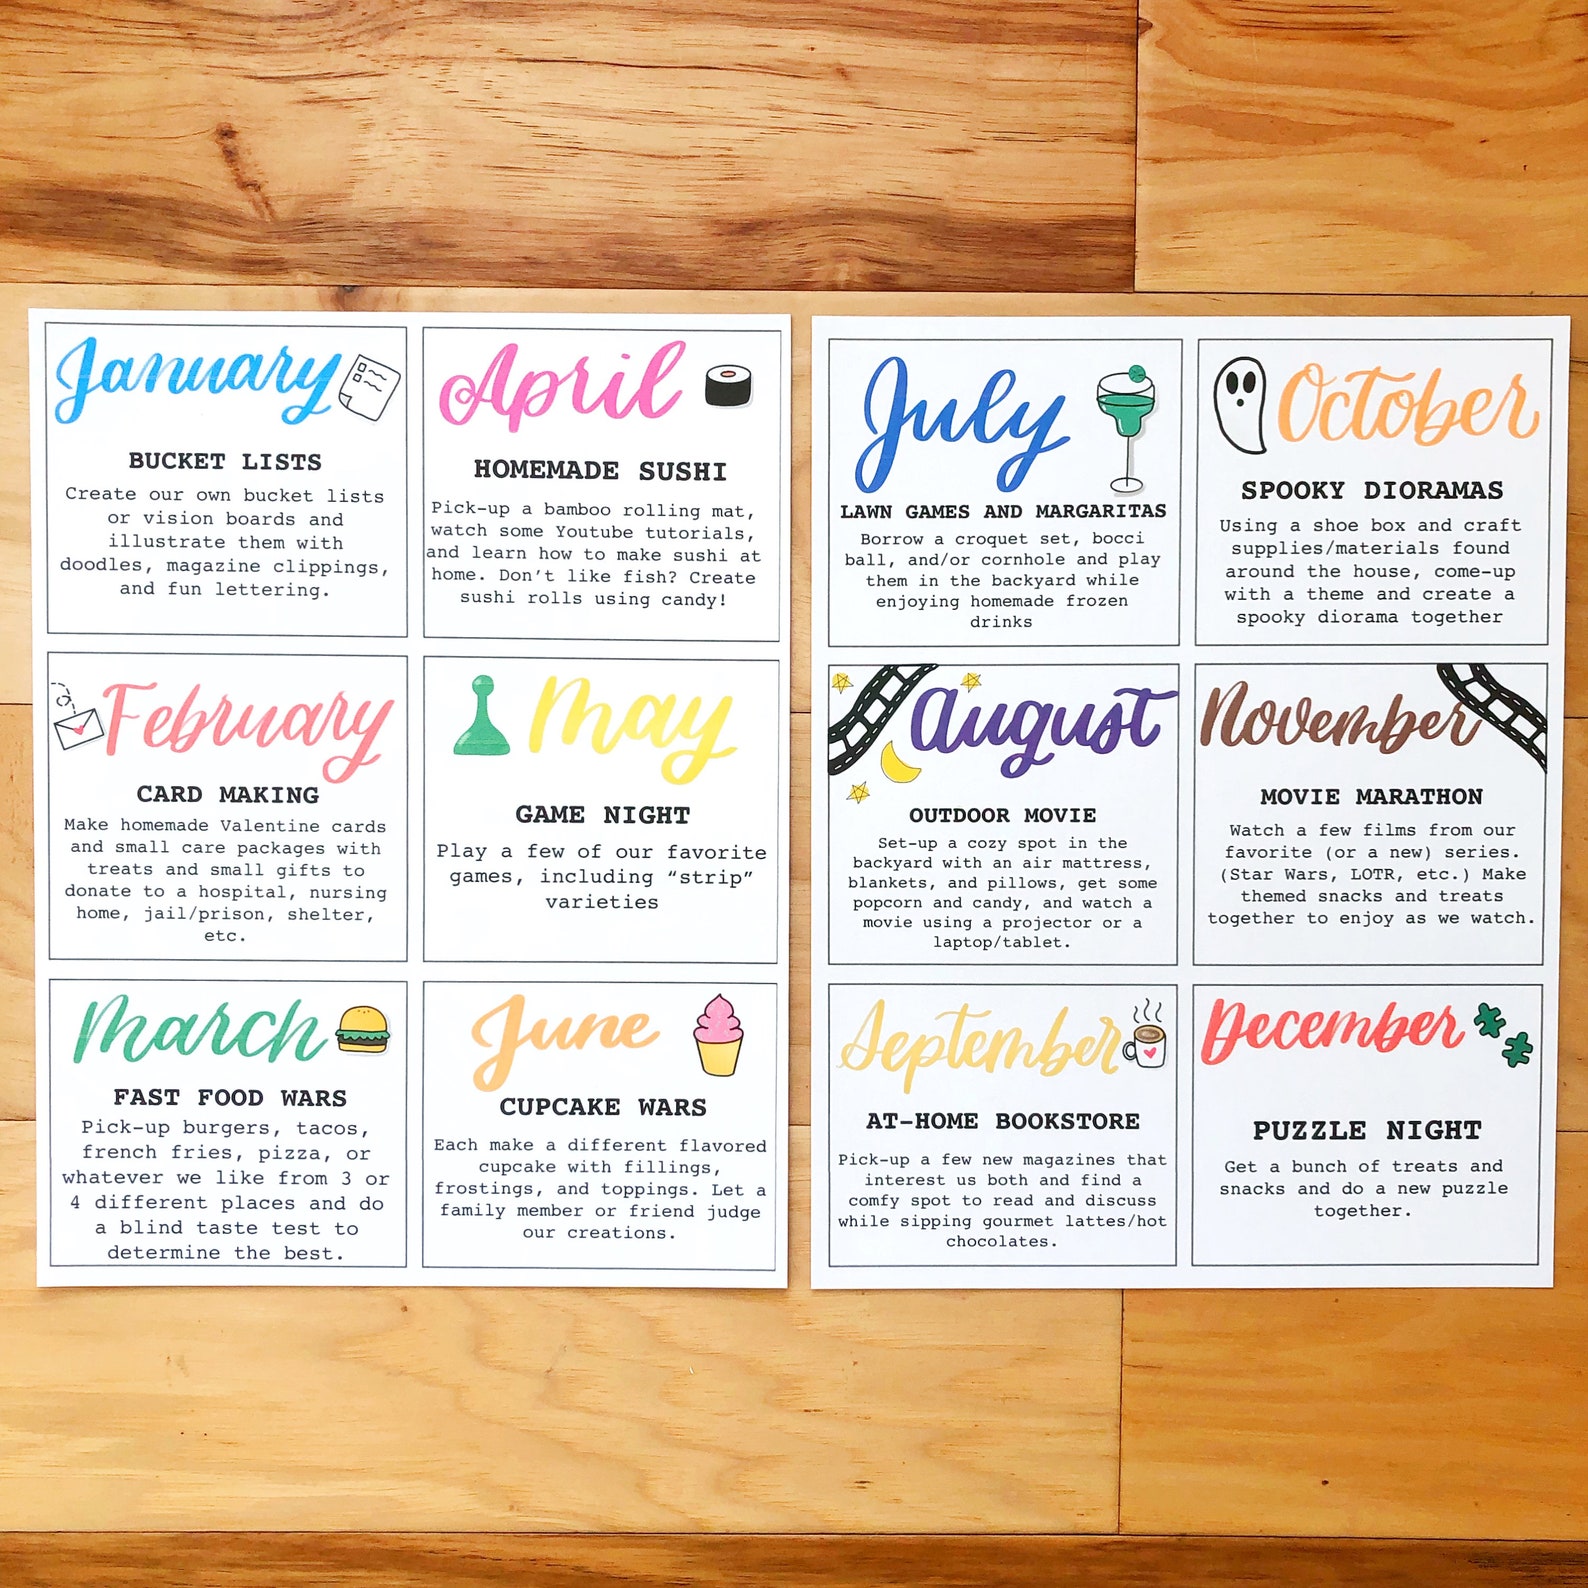 January
BUCKET LISTS
Create our own bucket lists
or vision boards and
illustrate them with
doodles, magazine clippings,
and fun lettering.
February
CARD MAKING
Make homemade Valentine cards
and small care packages with
treats and small gifts to
donate to a hospital, nursing
home, jail/prison, shelter,
etc.
March
FAST FOOD WARS
Pick-up burgers, tacos,
french fries, pizza, or
whatever we like from 3 or
4 different places and do
a blind taste test to
determine the best.
April
HOMEMADE SUSHI
Pick-up a bamboo rolling mat,
watch some Youtube tutorials,
and learn how to make sushi at
home. Don't like fish? Create
sushi rolls using candy!
May
GAME NIGHT
Play a few of our favorite
games, including “strip”
varieties
June
CUPCAKE WARS
Each make a different flavored
cupcake with fillings,
frostings, and toppings. Let a
family member or friend judge
our creations.
July
LAWN GAMES AND MARGARITAS
Borrow a croquet set, bocci
ball, and/or cornhole and play
them in the backyard while
enjoying homemade frozen
drinks
August
OUTDOOR MOVIE
Set-up a cozy spot in the
backyard with an air mattress,
blankets, and pillows, get some
popcorn and candy, and watch a
movie using a projector or a
laptop/tablet.
September
AT-HOME BOOKSTORE
Pick-up a few new magazines that
interest us both and find a
comfy spot to read and discuss
while sipping gourmet lattes/hot
chocolates.
October
SPOOKY DIORAMAS
Using a shoe box and craft
supplies/materials found
around the house, come-up
with a theme and create a
spooky diorama together
November
MOVIE MARATHON
Watch a few films from our
favorite (or a new) series.
(Star Wars, LOTR, etc.) Make
themed snacks and treats
together to enjoy as we watch.
December
PUZZLE NIGHT
Get a bunch of treats and
snacks and do a new puzzle
together.